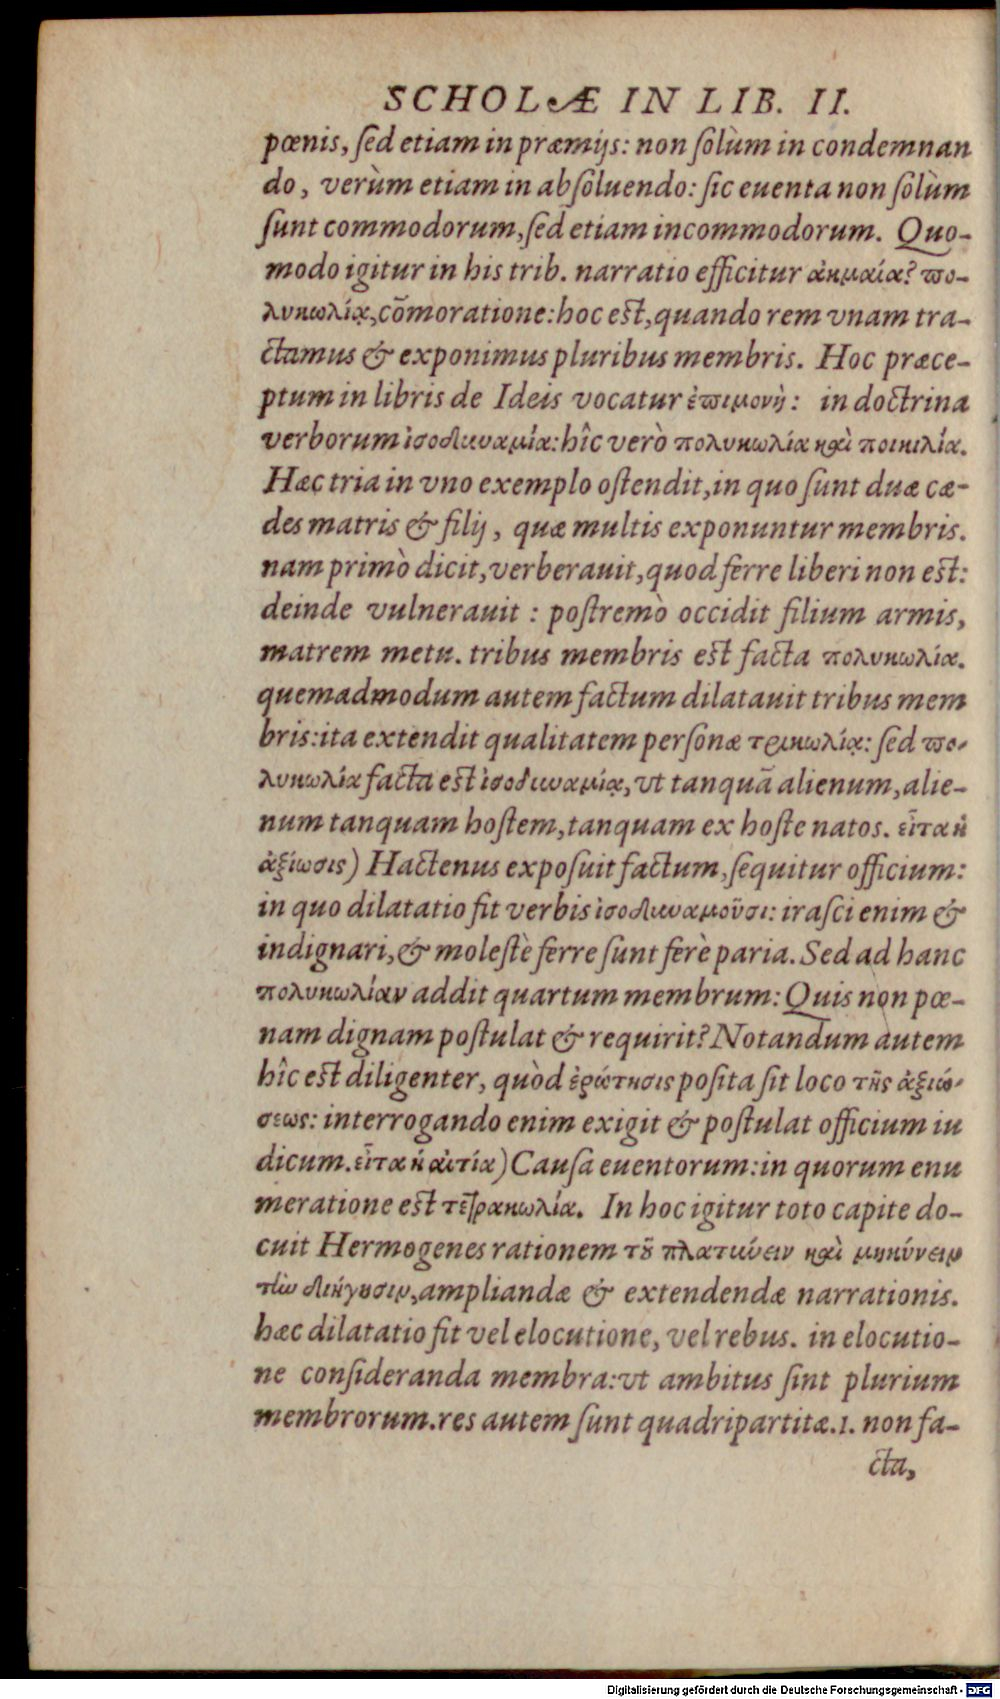 SCHOLÆ IN LIB. II.
pœnis, ſed etiam in præmijs: non ſolùm in condemnan
do, verùm etiam in abſoluendo: ſic euenta non ſolùm
ſunt commodorum, ſed etiam incommodorum. Quo-
modo igitur in his trib. narratio efficitur ἀκμαία? πο-
λυκωλίᾳ, cōmoratione: hoc est, quando rem vnam tra-
ctamus & exponimus pluribus membris. Hoc præce-
ptum in libris de Ideis vocatur ἐπιμονὴ: in doctrina
verborum ἰσοδυναμία: hîc verò πολυκωλία καὶ ποικιλία.
Hæc tria in vno exemplo oſtendit, in quo ſunt duæ cæ-
des matris & filij, quæ multis exponuntur membris.
nam primò dicit, verberauit, quod ferre liberi non est:
deinde vulnerauit: poſtremò occidit filium armis,
matrem metu. tribus membris est facta πολυκωλία.
quemadmodum autem factum dilatauit tribus mem
bris: ita extendit qualitatem perſonæ τρικωλίᾳ: ſed πο-
λυκωλία facta est ἰσοδυναμίᾳ, vt tanquā alienum, alie-
num tanquam hoſtem, tanquam ex hoſte natos. εἶτα ἡ
ἀξίωσις) Hactenus expoſuit factum, ſequitur officium:
in quo dilatatio fit verbis ἰσοδυναμοῦσι: iraſci enim &
indignari, & moleſtè ferre ſunt ferè paria. Sed ad hanc
πολυκωλίαν addit quartum membrum: Quis non pœ-
nam dignam poſtulat & requirit? Notandum autem
hîc est diligenter, quòd ἐρώτησις poſita ſit loco τῆς ἀξιώ-
σεως: interrogando enim exigit & poſtulat officium iu
dicum. εἶτα ἡ αἰτία) Cauſa euentorum: in quorum enu
meratione est τετρακωλία. In hoc igitur toto capite do-
cuit Hermogenes rationem τοῦ πλατύνειν καὶ μηκύνειν
τὴν διήγησιν, ampliandæ & extendendæ narrationis.
hæc dilatatio fit vel elocutione, vel rebus. in elocutio-
ne conſideranda membra: vt ambitus ſint plurium
membrorum. res autem ſunt quadripartitæ. 1. non fa-
cta,
Digitalisierung gefördert durch die Deutsche Forschungsgemeinschaft - DFG